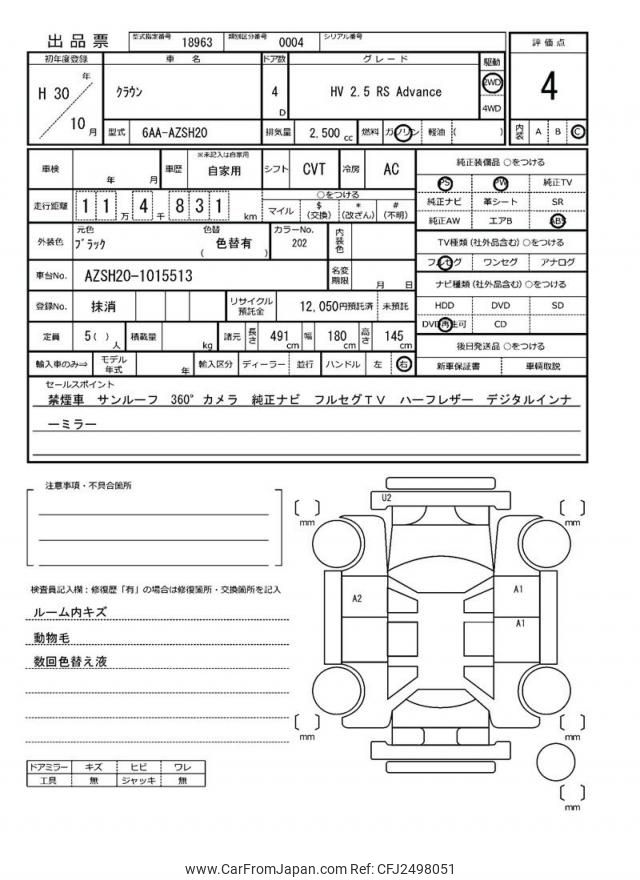 出品票 型式指定番号 18963 類別区分番号 0004 シリアル番号
初年度登録 車名 ドア数 グレード 駆動 評価点
H 30 年 10 月 クラウン 4 D HV 2.5 RS Advance 2WD 4WD 4
型式 6AA-AZSH20 排気量 2,500 cc 燃料 ガソリン 軽油 ( ) 内装 A B C
車検 年 月 車歴 ※未記入は自家用 自家用 シフト CVT 冷房 AC 純正装備品 ○をつける
PS PW 純正TV
走行距離 1 1 万 4 千 8 3 1 km ○をつける
マイル $ (交換) * (改ざん) # (不明) 純正ナビ 革シート SR
純正AW エアB ABS
外装色 元色 ブラック 色替 ( 色替有 ) カラーNo. 202 内装色 TV種類 (社外品含む) ○をつける
フルセグ ワンセグ アナログ
車台No. AZSH20-1015513 名変期限 月 日 ナビ種類 (社外品含む) ○をつける
登録No. 抹消 リサイクル預託金 12,050円預託済 未預託 HDD DVD SD
DVD再生可 CD
定員 5( ) 人 積載量 kg 諸元 長さ 491 cm 幅 180 cm 高さ 145 cm 後日発送品 ○をつける
輸入車のみ⇒ モデル年式 年 輸入区分 ディーラー 並行 ハンドル 左 右 新車保証書 車輌取説
セールスポイント
禁煙車 サンルーフ 360°カメラ 純正ナビ フルセグTV ハーフレザー デジタルインナ
ーミラー
注意事項・不具合箇所
U2
mm
mm
検査員記入欄:修復歴「有」の場合は修復箇所・交換箇所を記入
A2
A1
A1
ルーム内キズ
動物毛
数回色替え液
mm
mm
ドアミラー キズ ヒビ ワレ
工具 無 ジャッキ 無
mm
www.CarFromJapan.com Ref: CFJ2498051